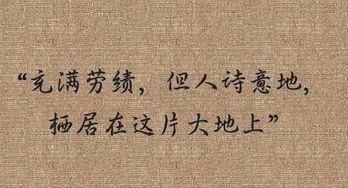 “充满劳绩，但人诗意地，
栖居在这片大地上”